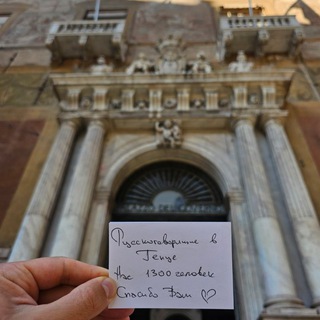 Русскоговорящие в
Генуе
Нас 1300 человек
Спасибо Вам ♡